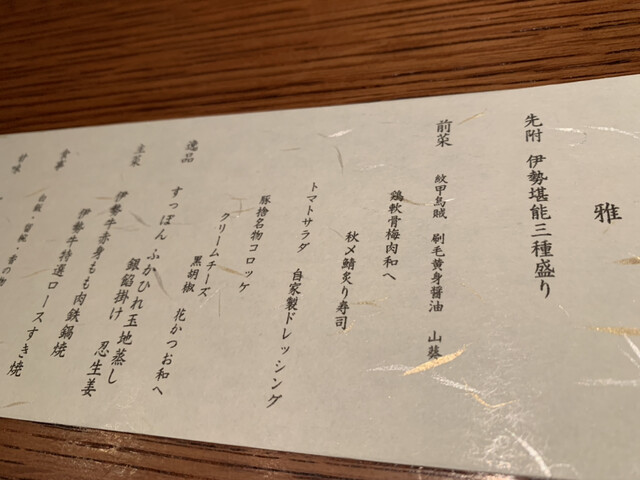 雅
先附 伊勢堪能三種盛り
前菜 紋甲烏賊 刷毛黄身醤油 山葵
鶏軟骨梅肉和へ
秋〆鯖炙り寿司
トマトサラダ 自家製ドレッシング
豚捨名物コロッケ
クリームチーズ 花かつお和へ
黒胡椒
逸品 すっぽん ふかひれ玉地蒸し
銀餡掛け 忍生姜
主菜 伊勢牛赤身もも肉鉄鍋焼
伊勢牛特選ロースすき焼
食事 白飯・留椀・香の物
甘味